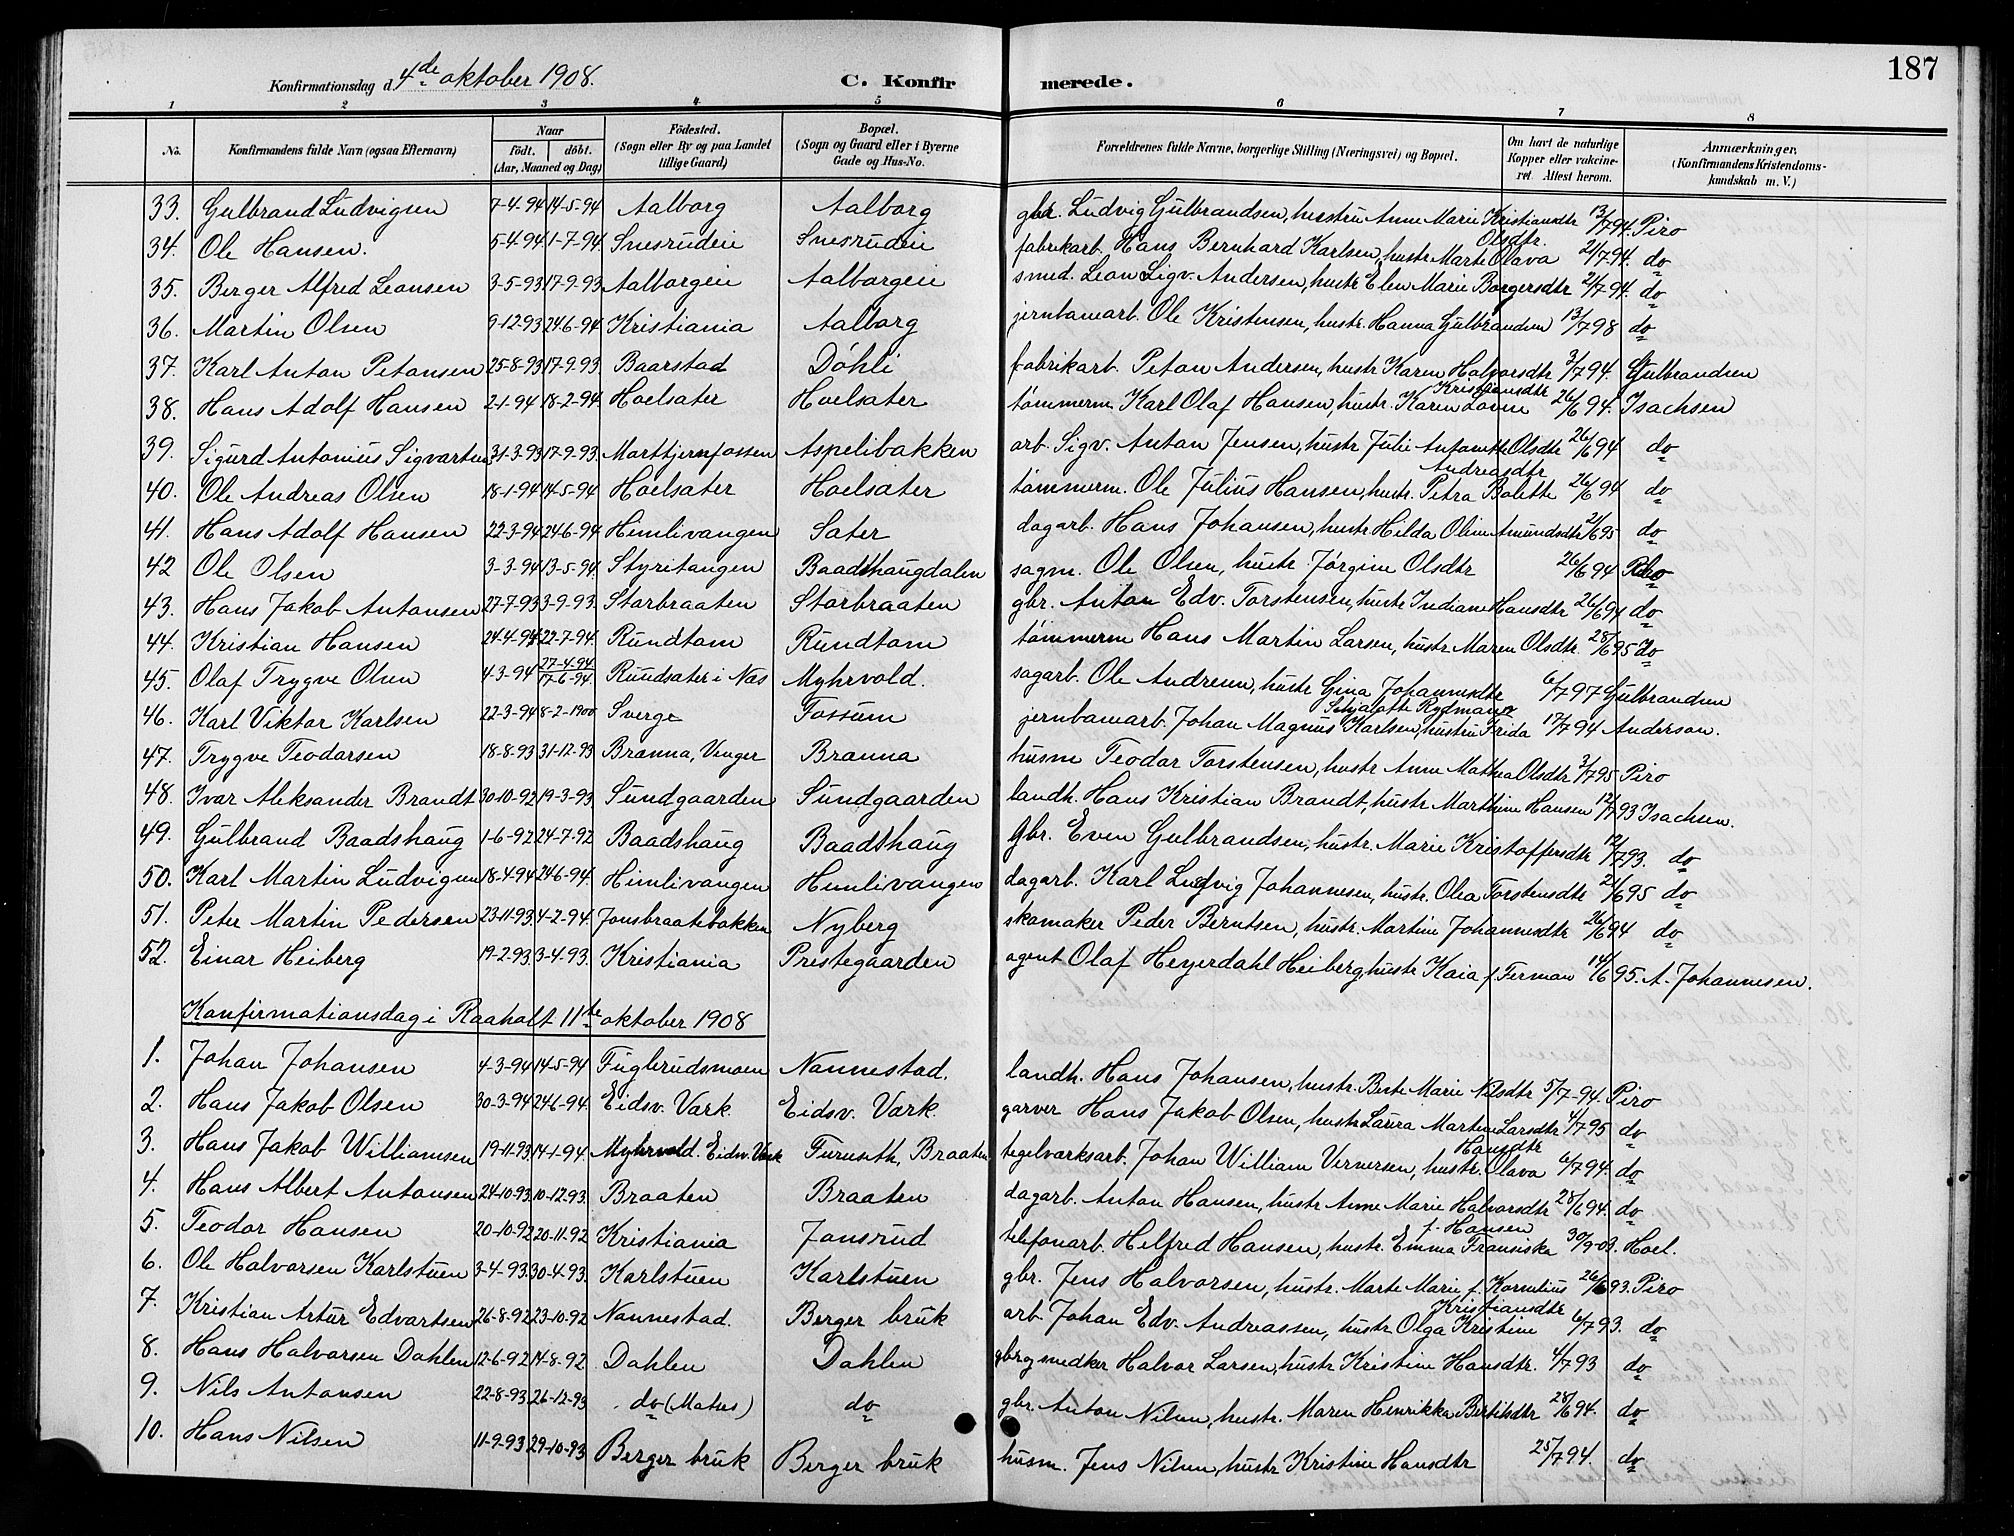 187
Konfirmationsdag d. 4de oktober 1908. C. Konfirmerede.
1 2 3 4 5 6 7 8
No. Konfirmandens fulde Navn (ogsaa Efternavn) Naar Födt. döbt. (Aar, Maaned og Dag) Födested. (Sogn eller By og paa Landet tillige Gaard) Bopæl. (Sogn og Gaard eller i Byerne Gade og Hus-No. Forældrenes fulde Navne, borgerlige Stilling (Næringsvei) og Bopæl. Om havt de naturlige Kopper eller vakcineret. Attest herom. Anmærkninger, (Konfirmandens Kristendomskundskab m. V.)
33. Gulbrand Ludvigsen 7-4-94 14-5-94 Aalborg Aalborg gbr. Ludvig Gulbrandsen, hustru Anne Marie Kristiansdtr 13/7 94. Piro
34. Ole Hansen. 5-4-94 1-7-94 Snesrudeie Snesrudeie fabrikarb. Hans Bernhard Karlsen, hustr Marte Olava Olsdtr. 21/7 94. do
35. Berger Alfred Leonsen 3-5-93 17-9-93 Aalborgeie Aalborgeie smed. Leon Sigv. Andersen, hustr Elen Marie Borgersdtr 21/7 94. do
36. Martin Olsen 9-12-93 24-6-94 Kristiania Aalborg jernbanearb. Ole Kristensen, hustr. Hanna Gulbrandsen 13/7 98 do
37. Karl Anton Petonsen 25-8-93 17-9-93 Baarstad Döhli fabrikarb. Peton Andersen, hustr Karen Halvorsdtr 3/7 94. Gulbrandsen
38. Hans Adolf Hansen 2-1-94 18-2-94 Hoelsater Hoelsater tömmerm Karl Olaf Hansen, hustr. Karen Lovise Kristiansdtr 26/6 94. Isachsen
39. Sigurd Antonius Sigvartsen 31-3-93 17-9-93 Morttjernfossen Aspelibakken arb. Sigv. Anton Jensen, hustr Julie Antonette Olsdtr 26/6 94 do
40. Ole Andreas Olsen 18-1-94 14-5-94 Hoelsater Hoelsater tömmerm. Ole Julius Hansen, hustr. Petra Bolette Andreasdtr 26/6 94 do
41. Hans Adolf Hansen 22-3-94 24-6-94 Himlivangen Sater dagarb. Hans Johansen, hustr Hilda Oline Amundsdtr 21/6 95 do
42 Ole Olsen 3-3-94 13-5-94. Styritangen Baadshaugdalen sagm. Ole Olsen, hustr. Jörgine Olsdtr 26/6 94 do
43. Hans Jakob Antonsen 27-7-93 3-9-93. Storbraaten Storbraaten gbr. Anton Edv. Torstensen, hustr Indiane Hansdtr 26/6 94 do
44. Kristian Hansen 24-4-94 22-7-94. Rundtom Rundtom tömmerm Hans Martin Larsen, hustr. Maren Olsdtr. 28/6 95 do
45. Olaf Trygve Olsen 4-3-94 27-4-94 17-6-94. Rundsater i Næs Myhrvold. sagarb. Ole Andresen, hustr Gina Johannesdtr 6/7 97 Gulbrandsen
46. Karl Viktor Karlsen 22-3-94 8-2-1900 Sverge Fossum jernbanearb. Johan Magnus Karlsen, hustru Frida Schjalotte Rydmann 17/7 94 Anderson.
47. Trygve Teodorsen 18-8-93 31-12-93 Branna, Vinger Branna husm Teodor Torstensen, hustr Anne Mathea Olsdtr 3/7 95 Piro
48. Ivar Aleksander Brandt 30-10-92 19-3-93. Sundgaarden Sundgaarden landh. Hans Kristian Brandt, hustr. Marthine Hansen 12/7 93 Isachsen.
49. Gulbrand Baadshaug 1-6-92 24-7-92 Baadshaug Baadshaug gbr. Even Gulbrandsen, hustr. Marie Kristoffersdtr 12/7 93. do
50. Karl Martin Ludvigsen 18-4-94 24-6-94. Himlivangen Himlivangen dagarb. Karl Ludvig Johannesen, hustr. Olea Torstensdtr 21/6 95 do
51. Peter Martin Pedersen 23-11-93 4-2-94. Jonsbraatebakken Nyberg skomaker Peder Berntsen, hustr. Martine Johannesdtr 26/6 94 do
52. Einar Heiberg 19-2-93. 3-4-93. Kristiania Prestegaarden agent Olaf Heyerdahl Heiberg, hustr Kaia f. Ferman 14/6 95. A. Johannesen.
Konfirmationsdag i Raaholt 11te oktober 1908
1. Johan Johansen 4-3-94 14-5-94 Fuglerudsmoen Nannestad. landh. Hans Johansen, hustr. Berte Marie Nilsdtr 5/7-94. Piro
2. Hans Jakob Olsen 30-3-94 24-6-94. Eidsv. Værk. Eidsv. Værk. garver Hans Jakob Olsen, hustr Laura Martine Larsdtr 4/7 95 do
3. Hans Jakob Williamsen 19-11-93 14-1-94. Myhrvold. Eidsv. Værk Furuseth, Braaten teglværksarb. Johan William Vernersen, hustr. Olava Hansdtr 6/7 94. do
4. Hans Albert Antonsen 24-10-93 10-12-93. Braaten Braaten dagarb. Anton Hansen, hustr Anne Marie Halvorsdtr 28/6 94. do
5. Teodor Hansen 20-10-92 20-11-92 Kristiania Jonsrud telefonarb. Helfred Hansen, hustr. Emma Fransiska f. Hansen 30/9-03. Hoel.
6. Ole Halvorsen Karlstuen 3-4-93. 30-4-93. Karlstuen Karlstuen gbr. Jens Halvorsen, hustr. Marte Marie f. Kornelius 26/6 93. Piro
7. Kristian Artur Edvartsen 26-8-92 23-10-92 Nannestad. Berger bruk arb. Johan Edv. Andreassen, hustr Olga Kristine Kristiansdtr 6/7 93. do
8. Hans Halvorsen Dahlen 12-6-92 14-8-92 Dahlen Dahlen gbr og snedker Halvor Larsen, hustr Kristine Hansdtr. 4/7 93 do
9. Nils Antonsen 22-8-93 26-12-93 do (Matus) do gbr. Anton Nilsen, hustr. Maren Henrikka Bertilsdtr 28/6 94. do
10. Hans Nilsen 11-9-93 29-10-93 Berger bruk Berger bruk husm. Jens Nilsen, hustr Kristine Hansdtr 25/7 94. do